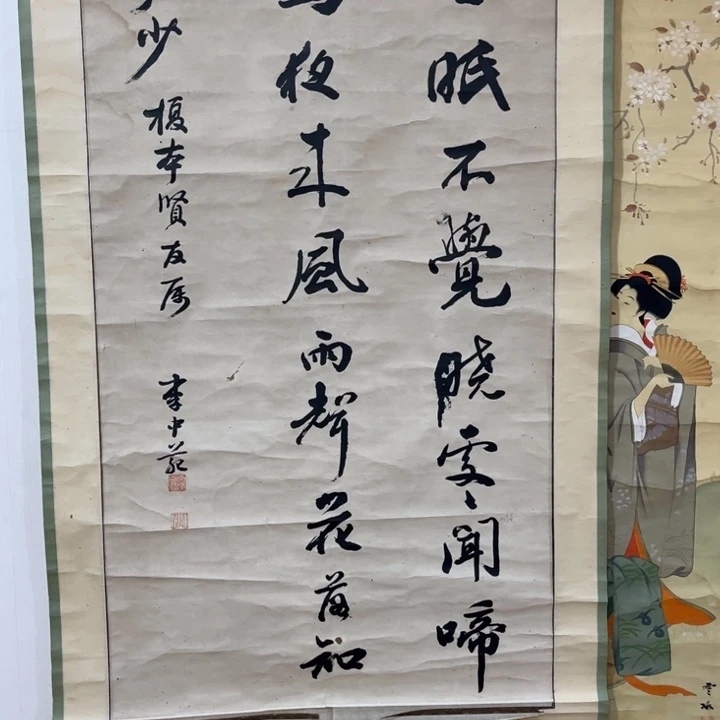 眠不覺曉處々聞啼
鳥夜来風雨聲花落知
少 榎本賢友属
李中